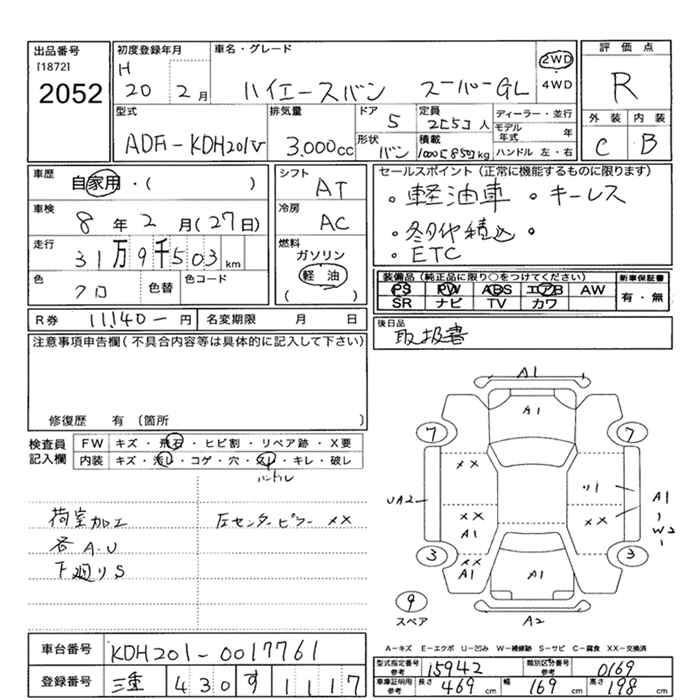 出品番号
[1872]
2052
初度登録年月
H
20 2月
車名・グレード
ハイエースバン スーパーGL
2WD
4WD
評価点
R
外装 内装
C B
型式
ADF-KDH201V
排気量
3.000cc
ドア
5
形状
バン
定員
2[5]人
積載
1000[850]kg
ディーラー・並行
モデル年式 年
ハンドル 左・右
車歴
自家用・( )
車検
8年2月(27日)
走行
31万9千503km
色
クロ
色替
色コード
シフト
AT
冷房
AC
燃料
ガソリン
軽油
( )
セールスポイント(正常に機能するものに限ります)
・軽油車 ・キーレス
・ ・
・ETC
装備品(純正品に限り○をつけてください)
PS PW ABS エアB AW
SR ナビ TV カワ
新車保証書
有・無
R券 11,140-円
名変期限 月 日
後日品
取扱書
注意事項申告欄(不具合内容等は具体的に記入して下さい)
修復歴 有 〔箇所 〕
検査員記入欄
FW キズ・飛石・ヒビ割・リペア跡・X要
内装 キズ・汚レ・コゲ・穴・スレ・キレ・破レ
ハンドル
荷室加工
各A.U
下廻りS
左センターピラー XX
A1
A1
7 7
XX
リ1
UA2
XX
A1
XX
A1
W2
3 3
XX
A1
A1
9
スペア
A2
A-キズ E-エクボ U-凹み W-補修跡 S-サビ C-腐食 XX-交換済
車台番号
KDH201-0017761
登録番号
三重 430 す 1117
型式指定番号 参考
15942
類別区分番号 参考
0169
車庫証明用 参考
長さ 469cm 幅 169cm 高さ 198cm